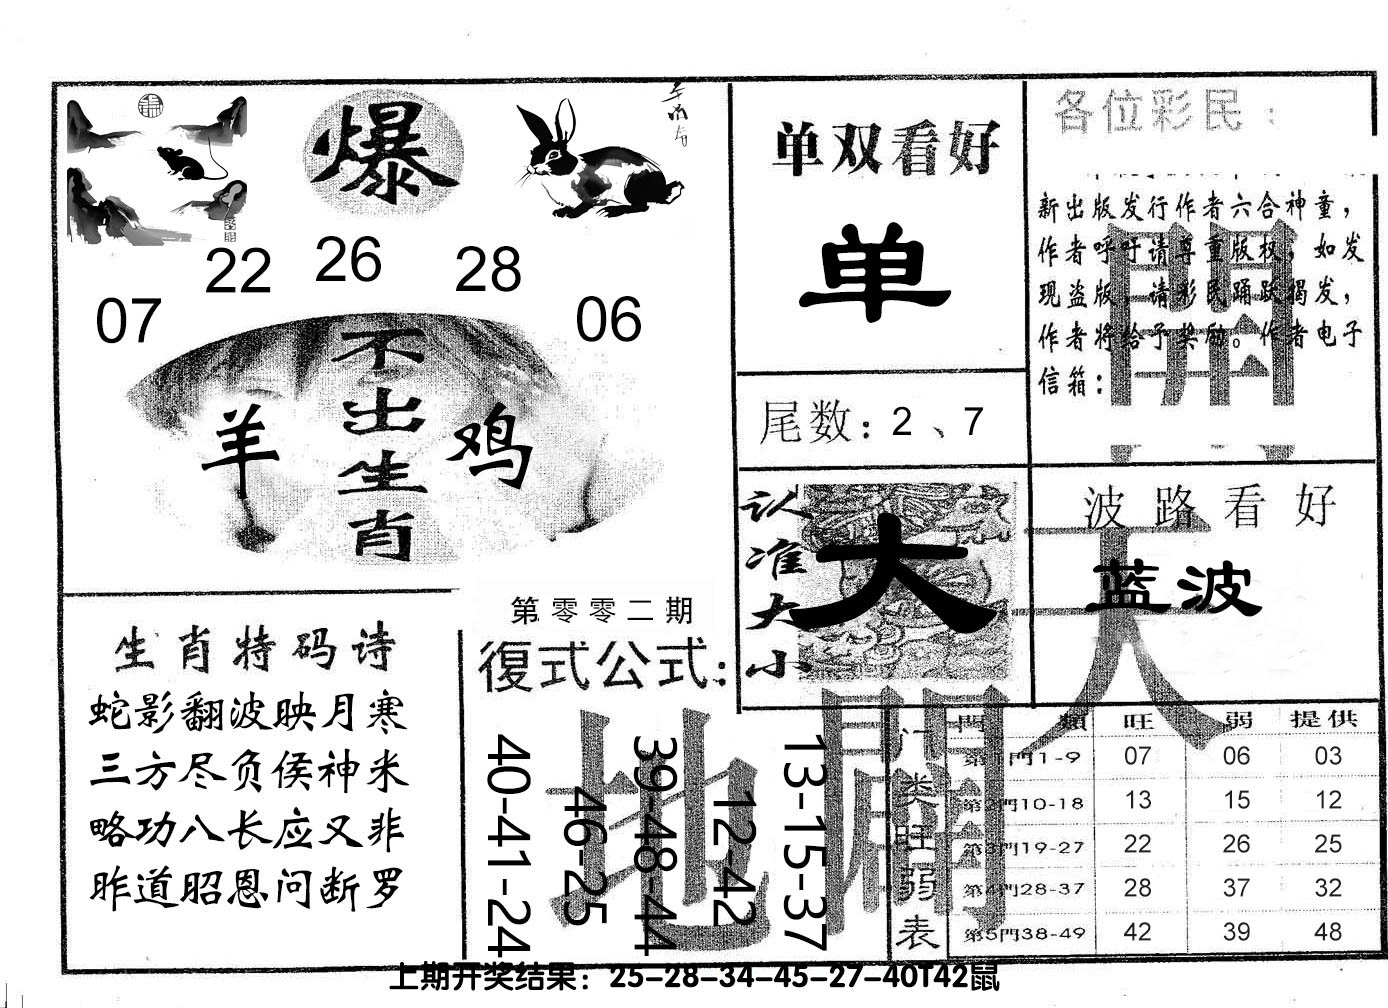 爆
22 26 28
07 06
不出生肖
羊 鸡
单双看好
单
尾数：2、7
认准大小
大
各位彩民：
新出版发行作者六合神童，
作者呼吁请尊重版权，如发
现盗版，请彩民踊跃揭发，
作者将给予奖励。作者电子
信箱：
波路看好
蓝波
生肖特码诗
蛇影翻波映月寒
三方尽负侯神米
略功八长应又非
昨道昭恩问断罗
第零零二期
復式公式：
40-41-24
46-25
39-48-44
12-42
13-15-37
天
開
地
闢
门类旺弱表
門類 旺 弱 提供
第1門1-9 07 06 03
第2門10-18 13 15 12
第3門19-27 22 26 25
第4門28-37 28 37 32
第5門38-49 42 39 48
上期开奖结果：25-28-34-45-27-40T42鼠